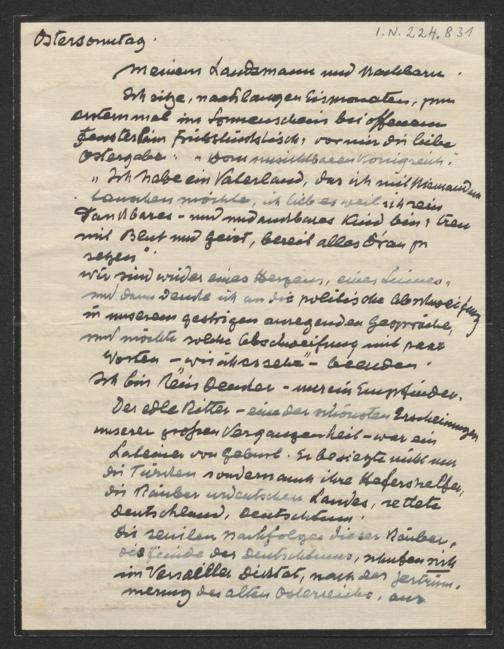 Ostersonntag.
I.N. 224.831
Meinem Landsmann und Nachbarn.
Ich sitze, nach langen Eismonaten, zum
erstenmal im Sonnenschein bei offenem
Fenster beim Frühstückstisch; vor mir die liebe
Ostergabe: "Vom unsichtbaren Königreich".
"Ich habe ein Vaterland, das ich mit Niemandem
tauschen möchte, ich lieb es weil ich sein
dankbares - und undankbares Kind bin; treu
mit Blut und Geist, bereit alles dran zu
setzen"!
Wir sind wieder eines Herzens, eines Sinnes -
und dann denke ich an die politische Abschweifung
in unserem gestrigen anregenden Gespräche,
und möchte solche Abschweifung mit paar
Worten - beenden!
Ich bin kein Denker - nur ein Empfinder.
Der edle Ritter - eine der schönsten Erscheinungen
unserer großen Vergangenheit - war ein
Lateiner von Geburt. Er besiegte nicht nur
die Türken sondern auch ihre Helfershelfer,
die Räuber urdeutschen Landes, rettete
Deutschland, Deutschtum!
Die senilen Nachfolger dieser Räuber,
die Feinde des Deutschtums, schufen sich
im Versailler Diktat, nach der Zertrüm-
merung des alten Österreichs, aus